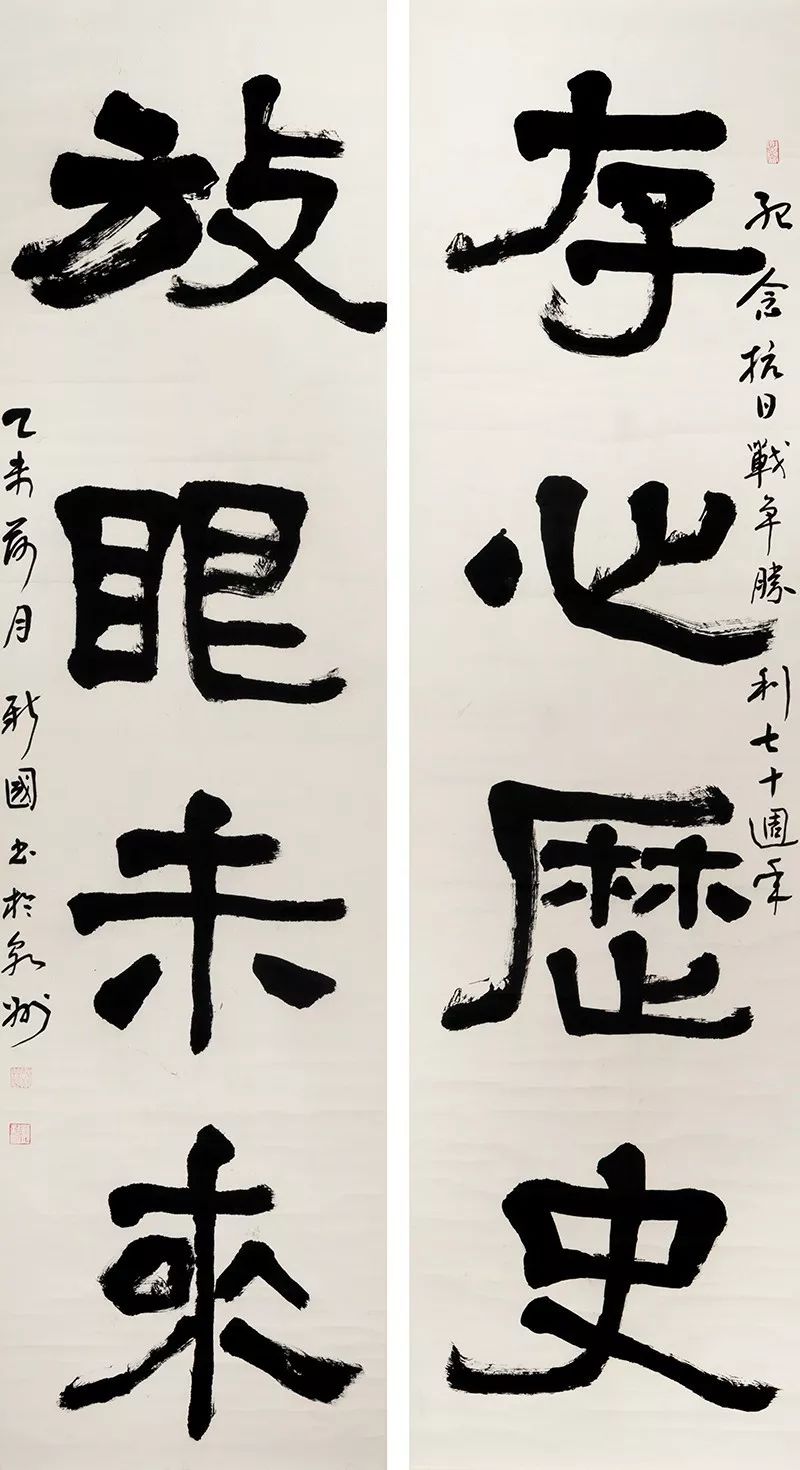 紀念抗日戰争勝利七十週年
存心歴史
放眼未來
乙未荷月 新國書於泉州